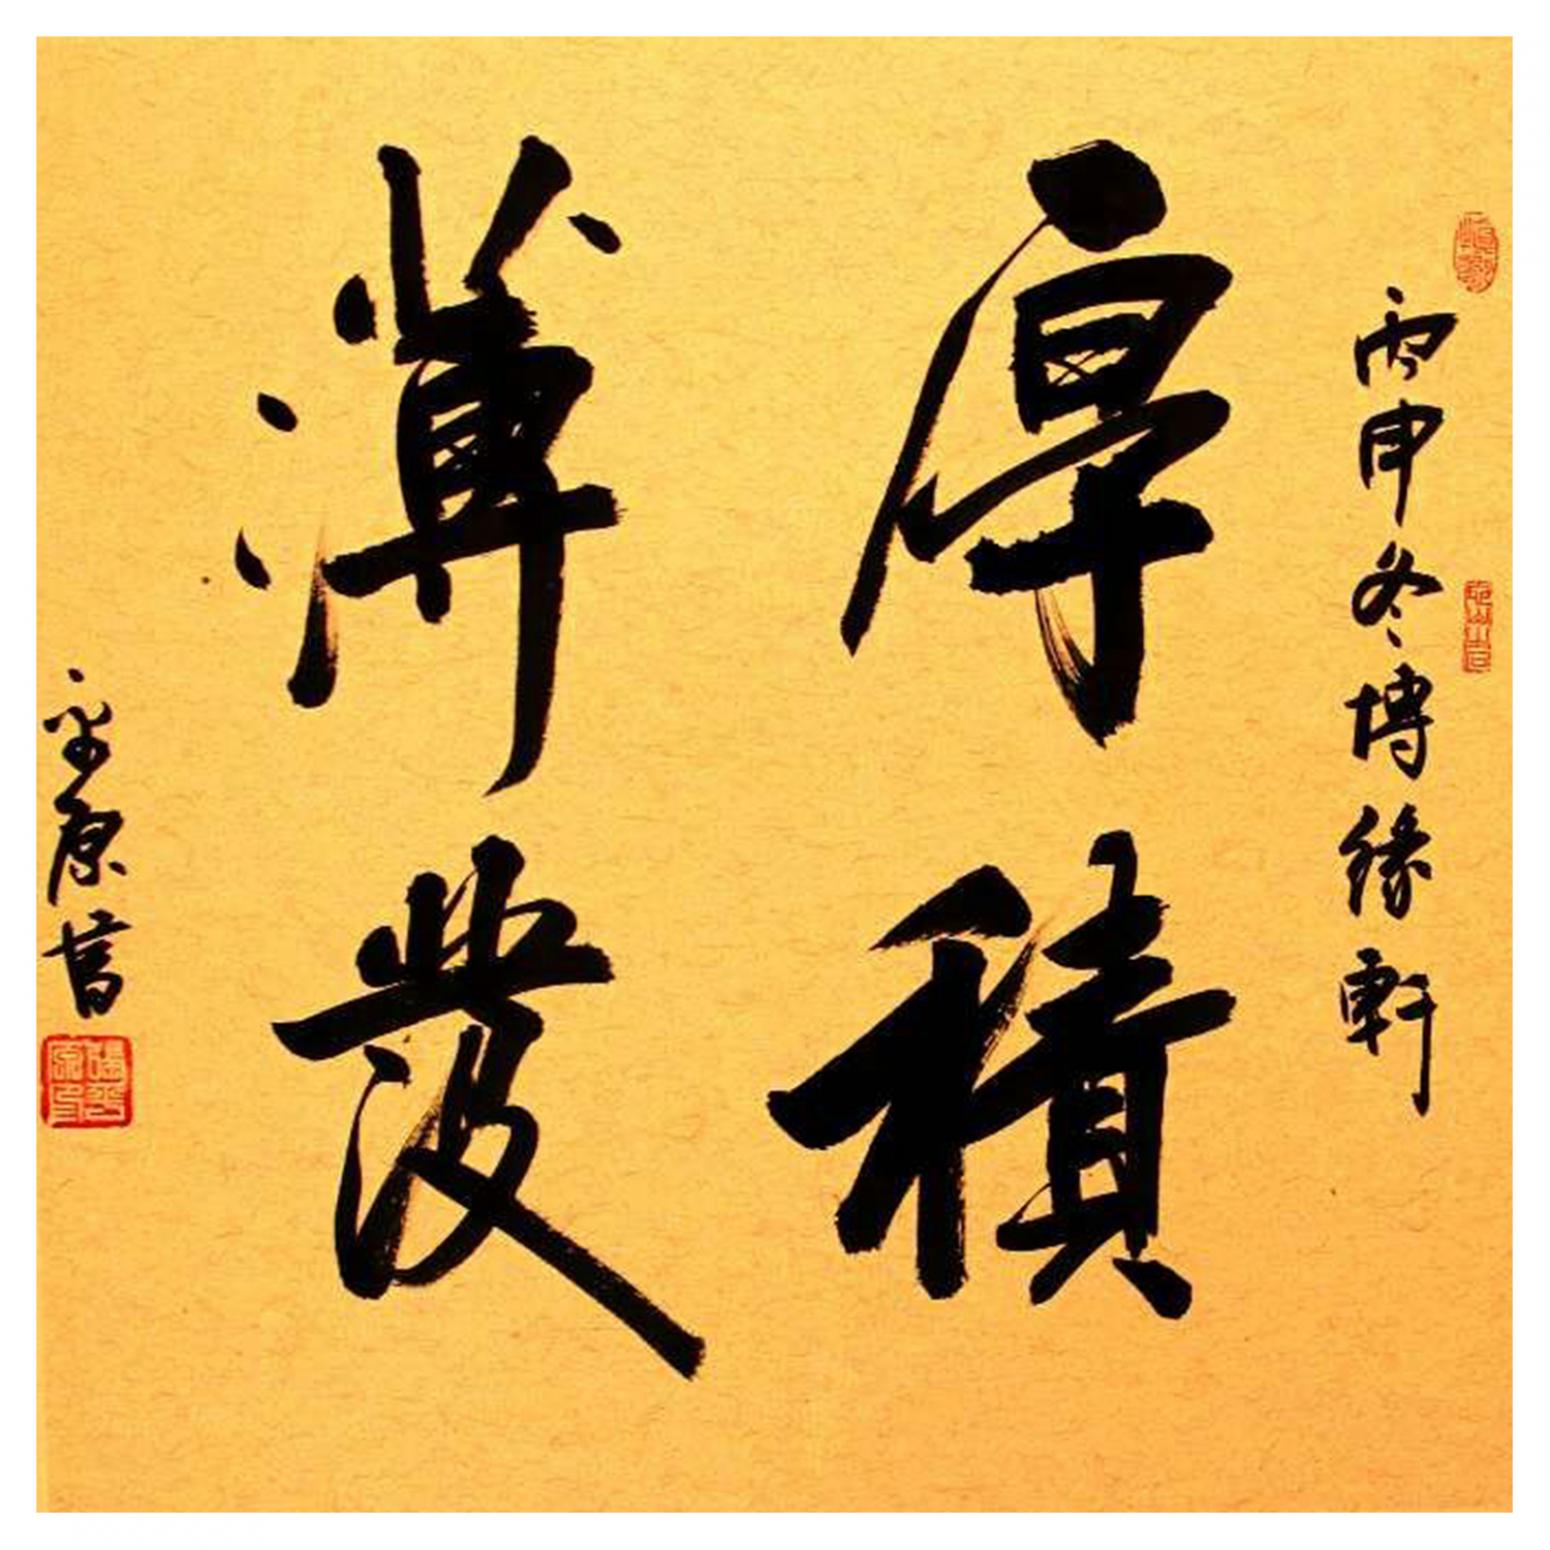 丙申冬博緣軒
厚積
薄發
平原書